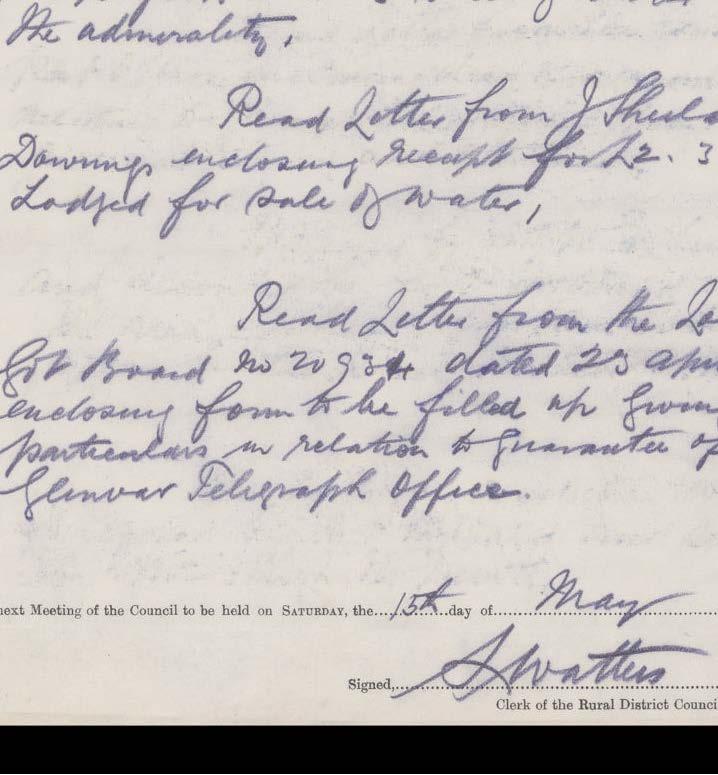 the admirality,
Read Letter from J Sheils
Downings enclosing receipt for £2. 3
Lodged for sale of water,
Read Letter from the Lo
Gvt Board no 20934 dated 23 Apr
enclosing form to be filled up Giving
particulars in relation to Guarantee of
Glenvar Telegraph Office.
next Meeting of the Council to be held on SATURDAY, the....15th....day of....May
Signed,....S Watters
Clerk of the Rural District Counci